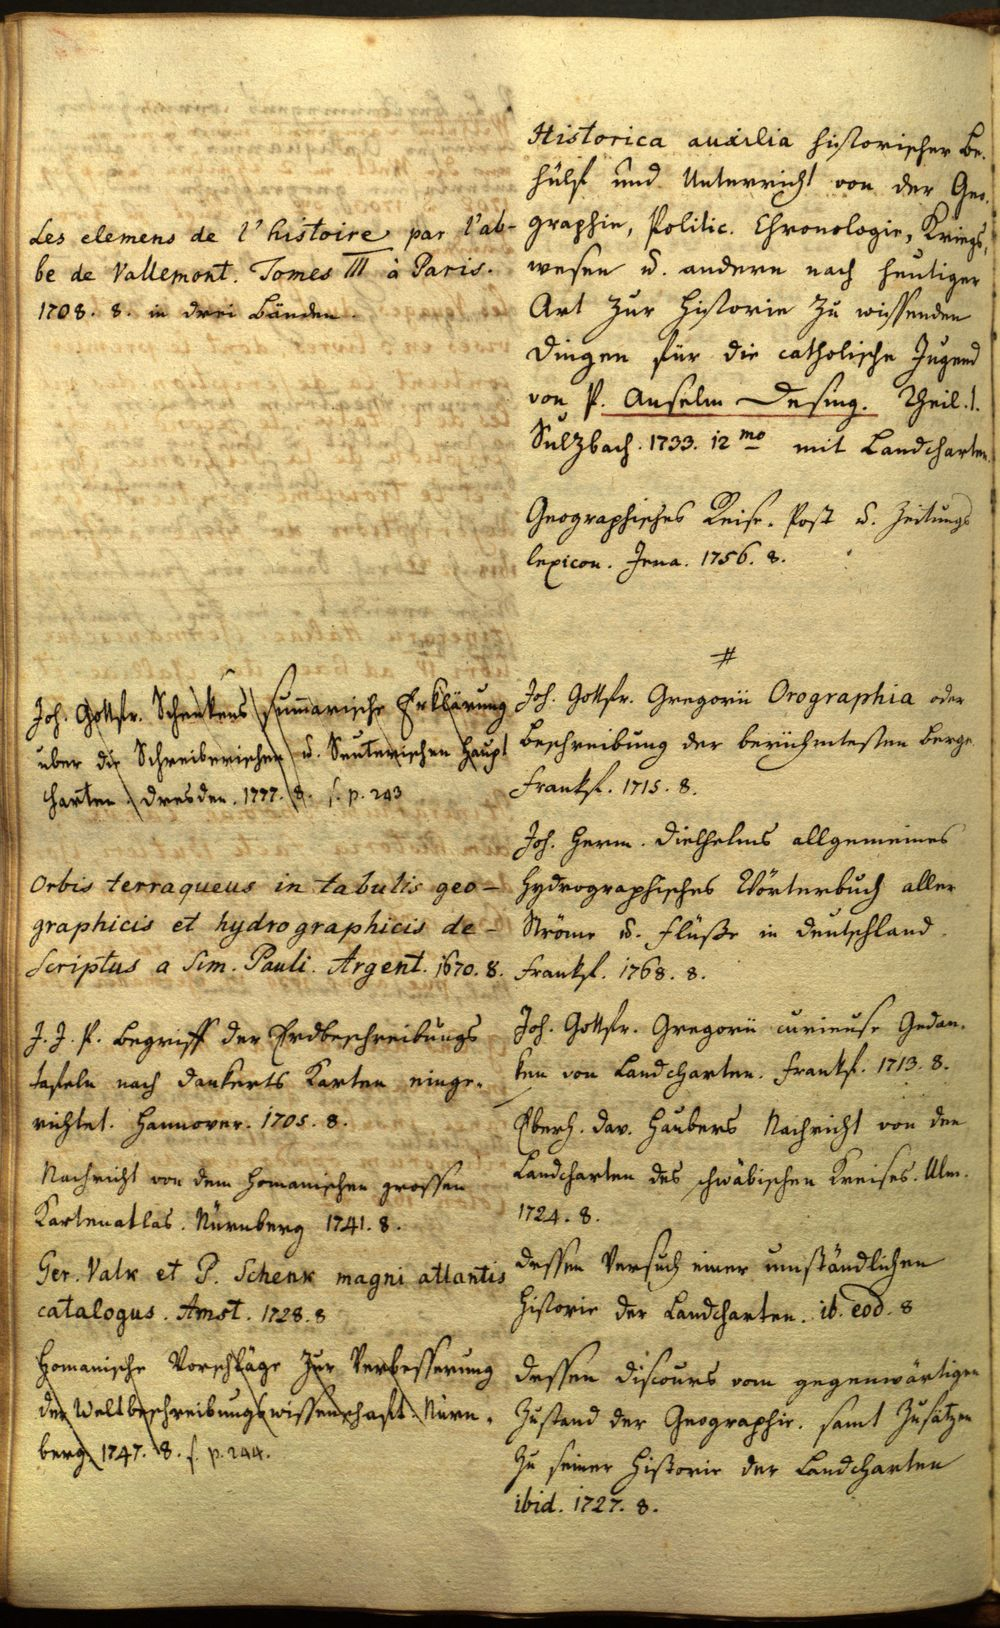 Les elemens de l'histoire par l'ab-
be de Vallemont. Tomes III à Paris.
1708. 8. in drei Bänden.
Joh. Gottfr. Schenkens summarische Erklärung
über die Schreiberischen u. Seuterischen Haupt
charten. Dresden. 1777. 8. s. p. 243
Orbis terraqueus in tabulis geo-
graphicis et hydrographicis de-
scriptus a Sim. Pauli. Argent. 1670. 8.
J. J. P. Begriff der Erdbeschreibungs
tafeln nach Dankerts Karten einge-
richtet. Hannover. 1705. 8.
Nachricht von dem Homanischen grossen
Kartenatlas. Nürnberg 1741. 8.
Ger. Valk et P. Schenk magni atlantis
catalogus. Amst. 1728. 8
Homanische Vorschläge zur Verbesserung
der Weltbeschreibungswissenschaft. Nürn-
berg 1747. 8. s. p. 244.
Historica auxilia historischer Be-
hülf und Unterricht von der Geo-
graphie, Politic. Chronologie, Kriegs-
wesen u. andern nach heutiger
Art zur Historie zu wissenden
Dingen für die catholische Jugend
von P. Anselm Desing. Theil. 1.
Sulzbach. 1733. 12mo mit Landcharten.
Geographisches Reise- Post u. Zeitungs
lexicon. Jena. 1756. 8.
#
Joh. Gottfr. Gregorii Orographia oder
Beschreibung der berühmtesten Berge
Frankf. 1715. 8.
Joh. Herm. Dielhelms allgemeines
hydrographisches Wörterbuch aller
Ströme u. Flüße in Deutschland.
Frankf. 1768. 8.
Joh. Gottfr. Gregorii curieuse Gedan-
ken von Landcharten. Frankf. 1713. 8.
Eberh. Dav. Haubers Nachricht von den
Landcharten des schwäbischen Kreises. Ulm.
1724. 8.
Dessen Versuch einer umständlichen
Historie der Landcharten. ib. eod. 8
Dessen Discours vom gegenwärtigen
Zustand der Geographie. samt Zusätzen
zu seiner Historie der Landcharten
ibid. 1727. 8.